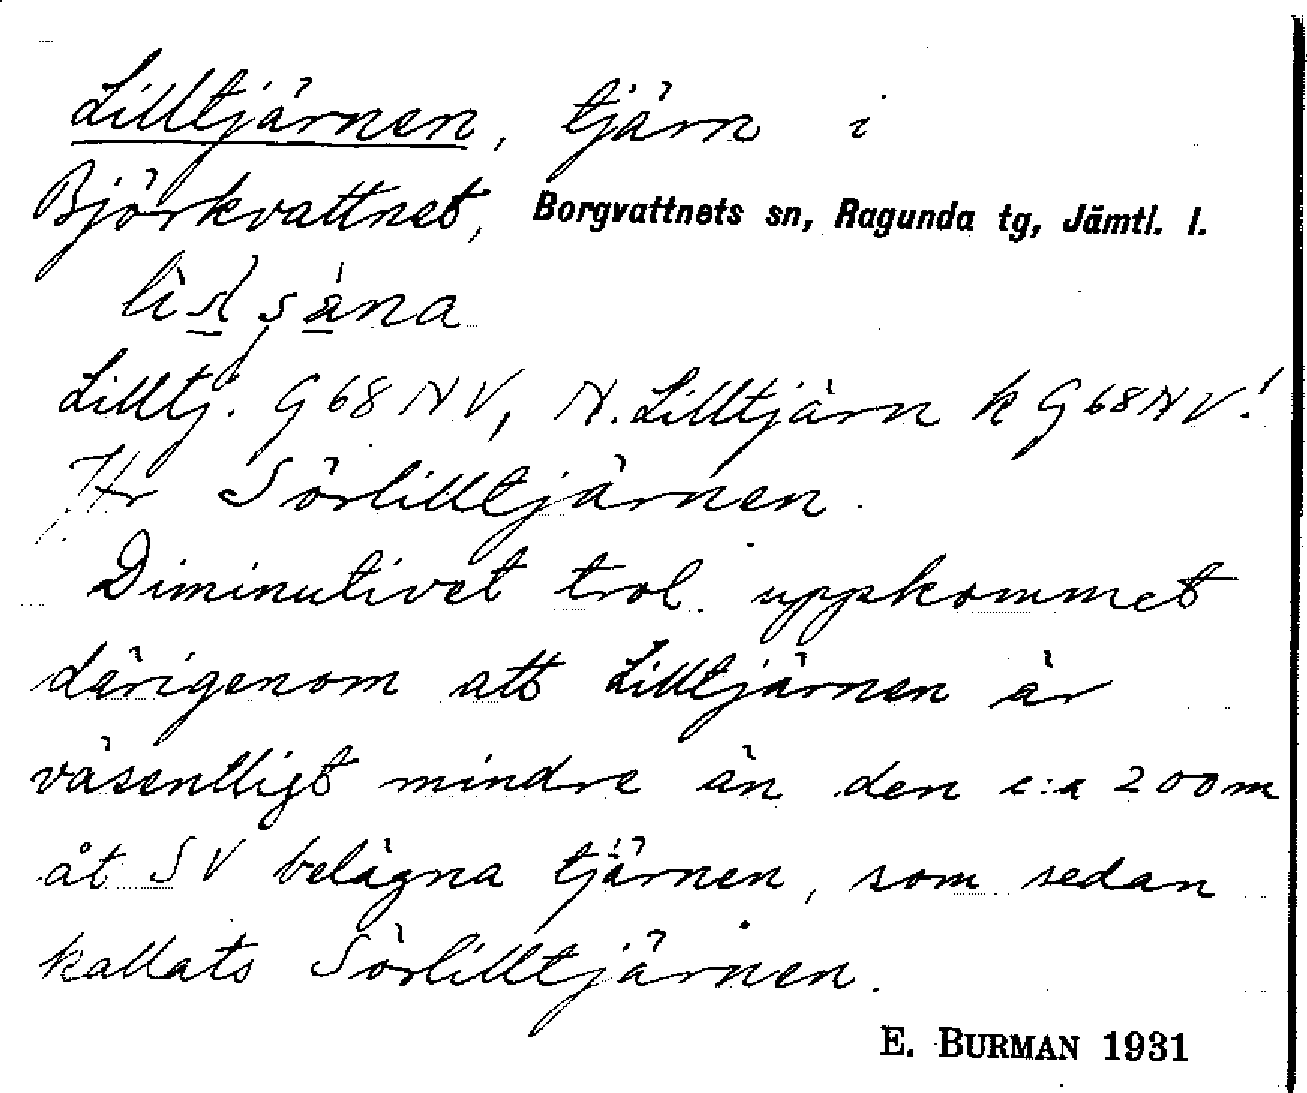 Lilltjärnen, tjärn i
Björkvattnet, Borgvattnets sn, Ragunda tg, Jämtl. l.
Lilltj. G68NV, N. Lilltjärn k G68NV!
Jfr Sörlilltjärnen.
Diminutivet trol. uppkommet
därigenom att Lilltjärnen är
väsentligt mindre än den c:a 200m
åt SV belägna tjärnen, som sedan
kallats Sörlilltjärnen.
E. BURMAN 1931